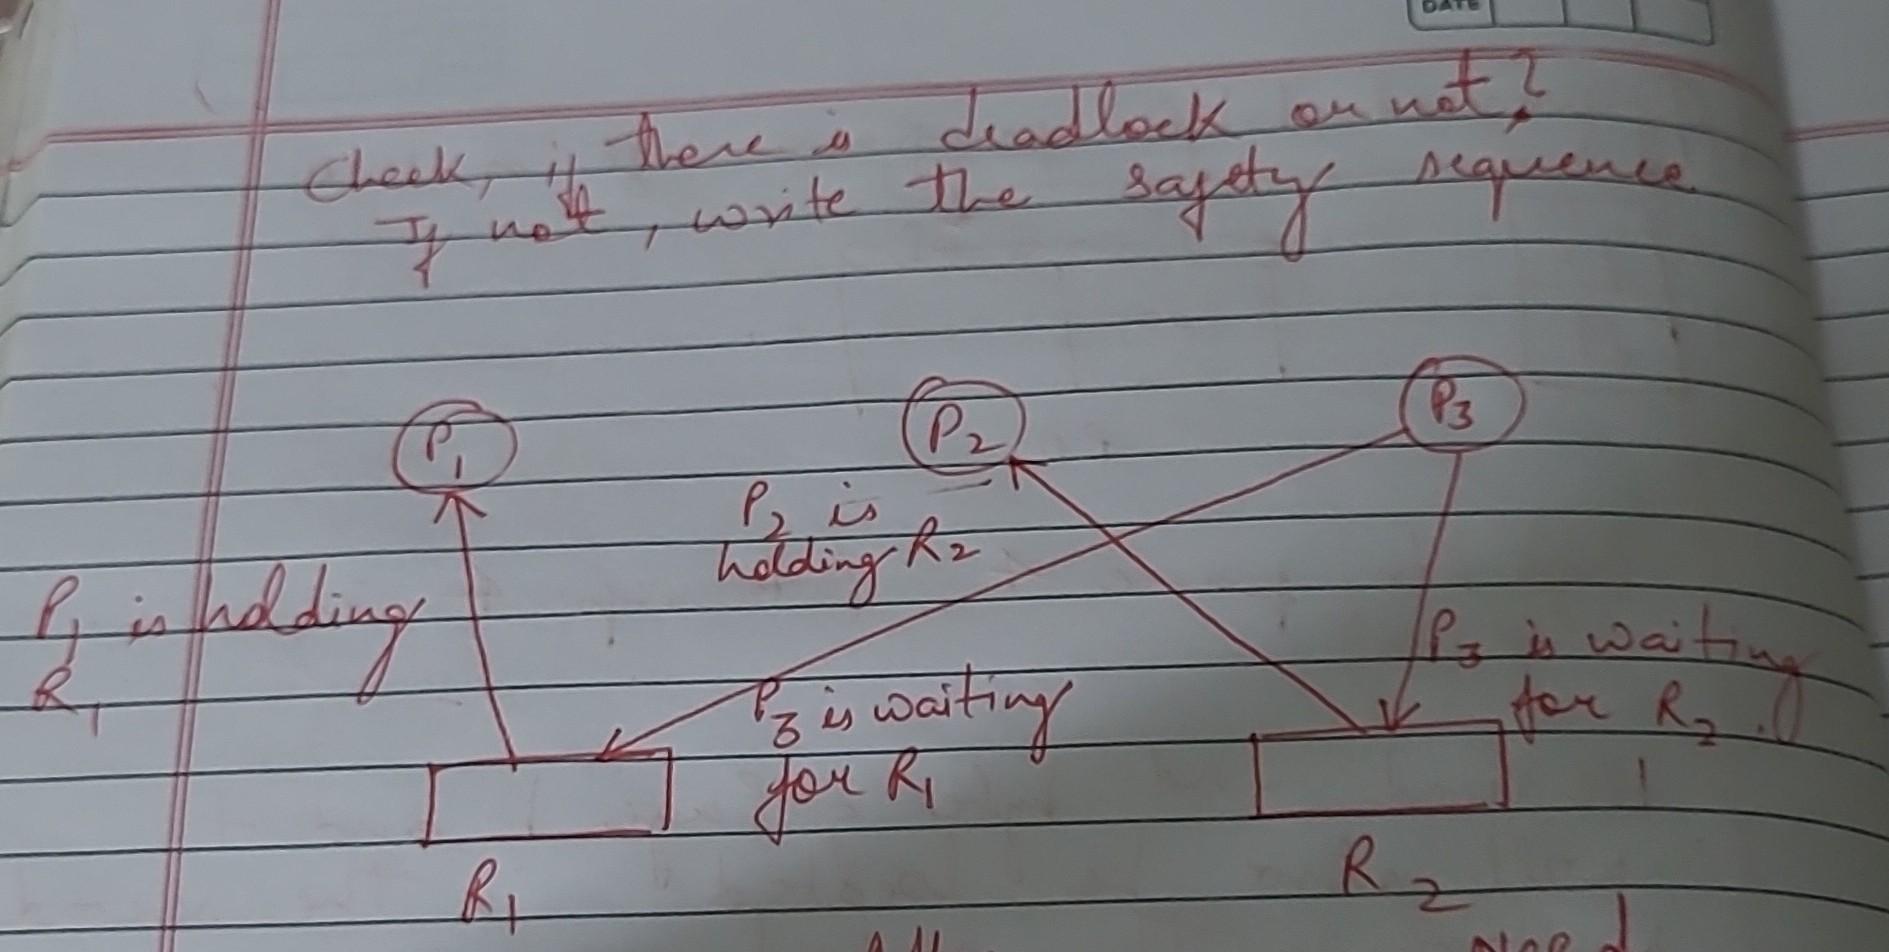 DATE
Check, if there is deadlock or not?
If not, write the safety sequence
P1 P2 P3
P2 is
holding R2
P1 is holding
R1
P3 is waiting
for R2.
P3 is waiting
for R1
R1
R2
Need